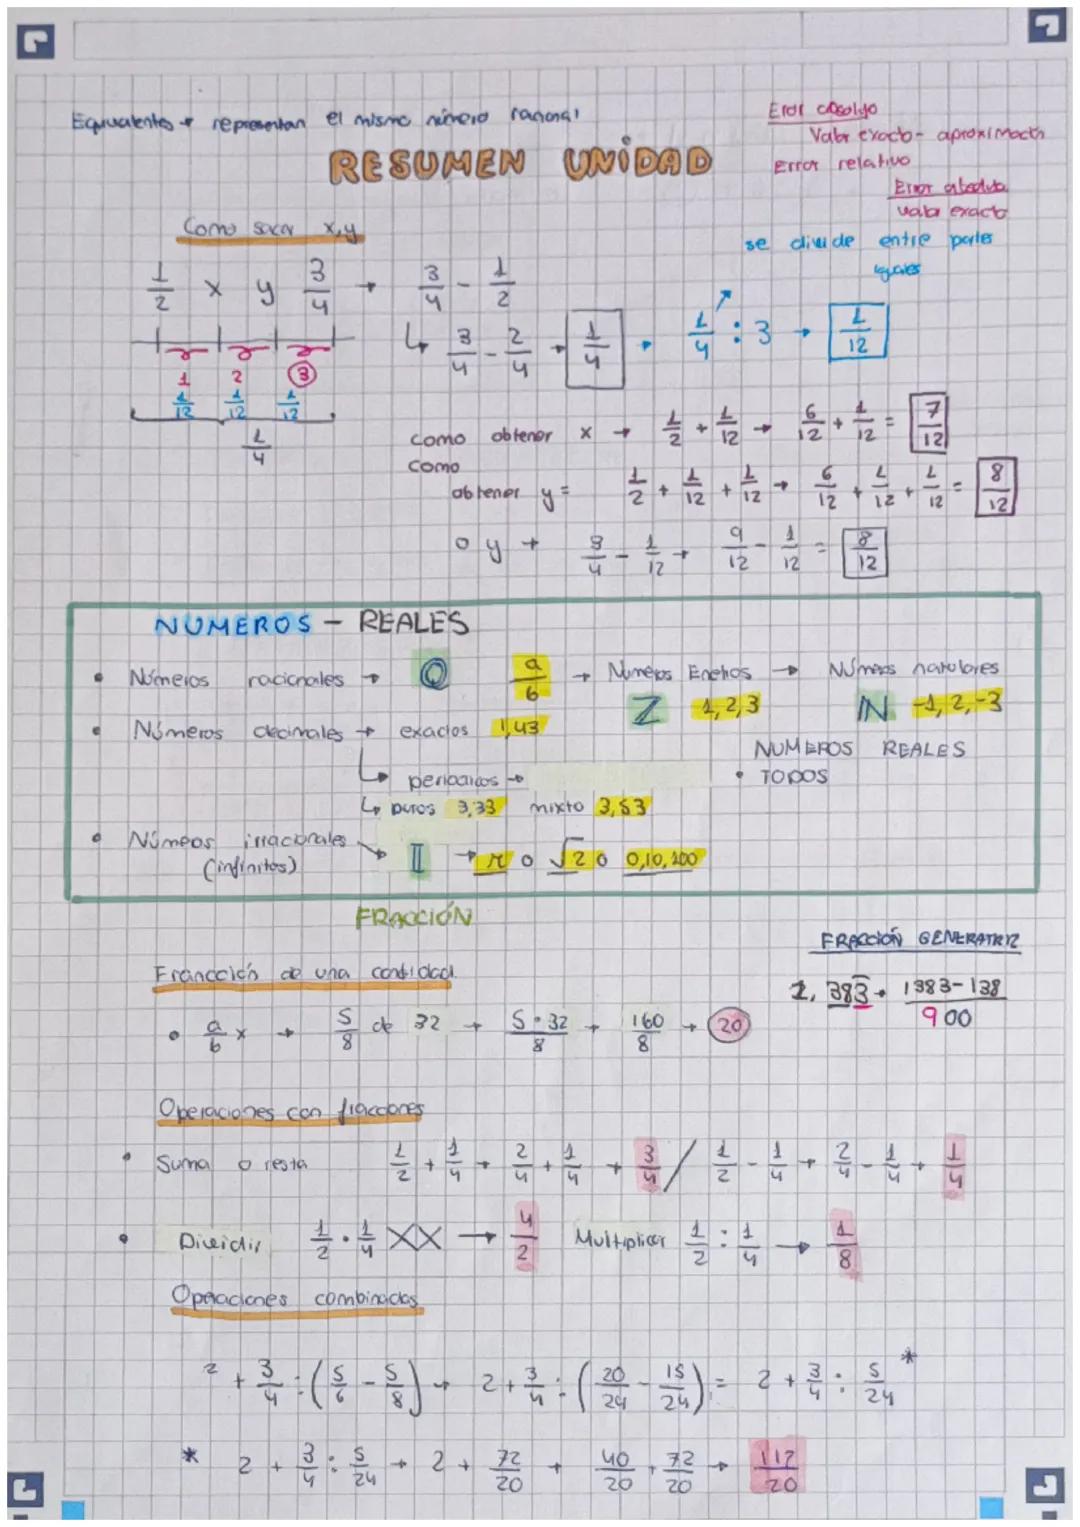 Equivalentes → representan el mismo número racional
Error absoluto
Valor exacto - aproximación
Error relativo
Error absoluto
valor exacto
RESUMEN UNIDAD
Como sacar x,y
se divide entre partes
iguales
1/2 x y 3/4 → 3/4 - 1/2
↳ 3/4 - 2/4 → 1/4 → 1/4 : 3 → 1/12
1 2 3
1/12 1/12 1/12
1/4
como obtener x → 1/2 + 1/12 → 6/12 + 1/12 = 7/12
como
obtener y = 1/2 + 1/12 + 1/12 → 6/12 + 1/12 + 1/12 = 8/12
o y → 3/4 - 1/12 → 9/12 - 1/12 = 8/12
NUMEROS - REALES
• Números racionales → Q a/b → Números Enteros → Números naturales
Z 1,2,3 IN -1,2,-3
• Números decimales → exactos 1,43
NUMEROS REALES
• TODOS
↳ periodicos →
↳ puros 3,33 mixto 3,53
• Números irracionales
(infinitos) → I → π o √2 o 0,10,100
FRACCIÓN
FRACCIÓN GENERATRIZ
Francción de una cantidad
1,383 → 1383-138/900
• a/b x → 5/8 de 32 → 5·32/8 → 160/8 → 20
Operaciones con fracciones
• Suma o resta 1/2 + 1/4 → 2/4 + 1/4 → 3/4 / 1/2 - 1/4 → 2/4 - 1/4 → 1/4
• Dividir 1/2 · 1/4 XX → 4/2 Multiplicar 1/2 : 1/4 → 1/8
Operaciones combinadas
2 + 3/4 : (5/6 - 5/8) → 2 + 3/4 : (20/24 - 15/24) = 2 + 3/4 : 5/24 *
* 2 + 3/4 : 5/24 → 2 + 72/20 → 40/20 + 72/20 → 112/20